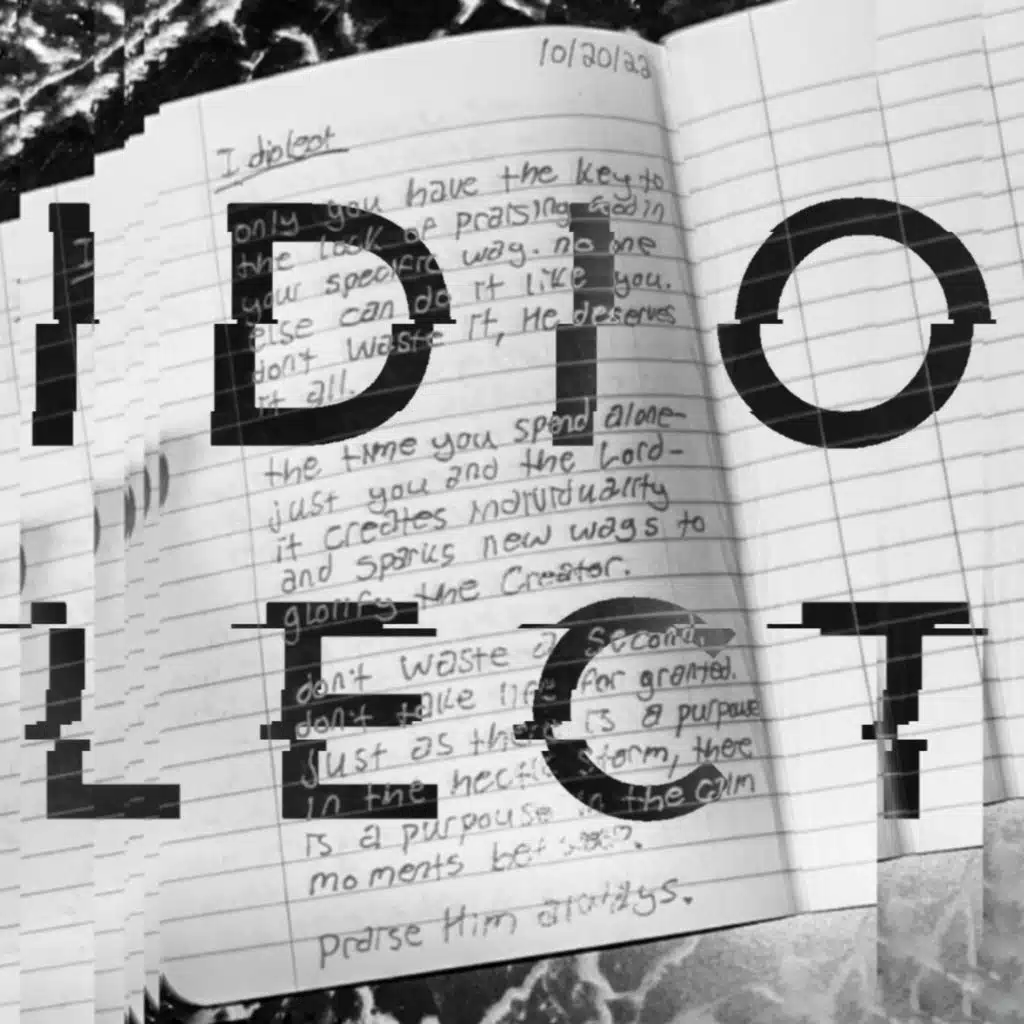 10/20/22
I diolect
only you have the key to
the lock of praising God in
your specific way. no one
else can do it like you.
don't waste it, He deserves
it all.
the time you spend alone-
just you and the Lord-
it creates individuality
and sparks new ways to
glorify the Creator.
don't waste a second.
don't take life for granted.
Just as there is a purpouse
in the hectic storm, there
is a purpouse in the calm
moments between.
praise Him always.
IDIO
LECT